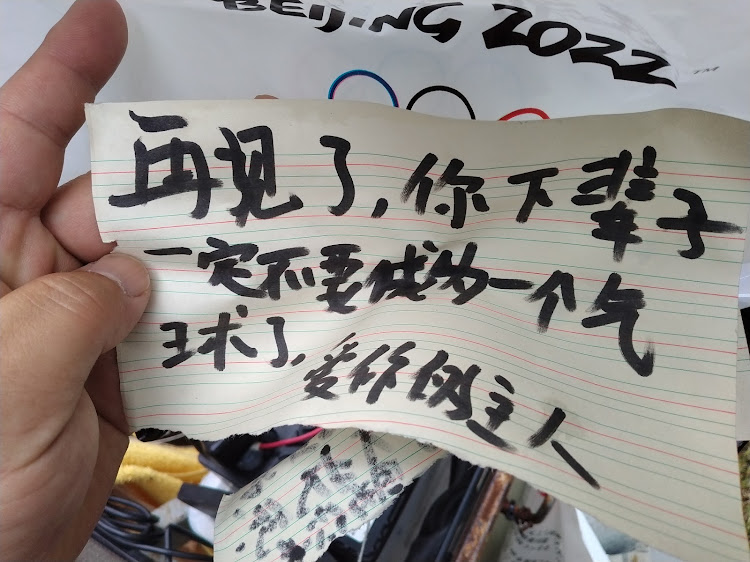 BEIJING 2022™
再见了,你下辈子
一定不要成为一个气
球了,爱你的主人